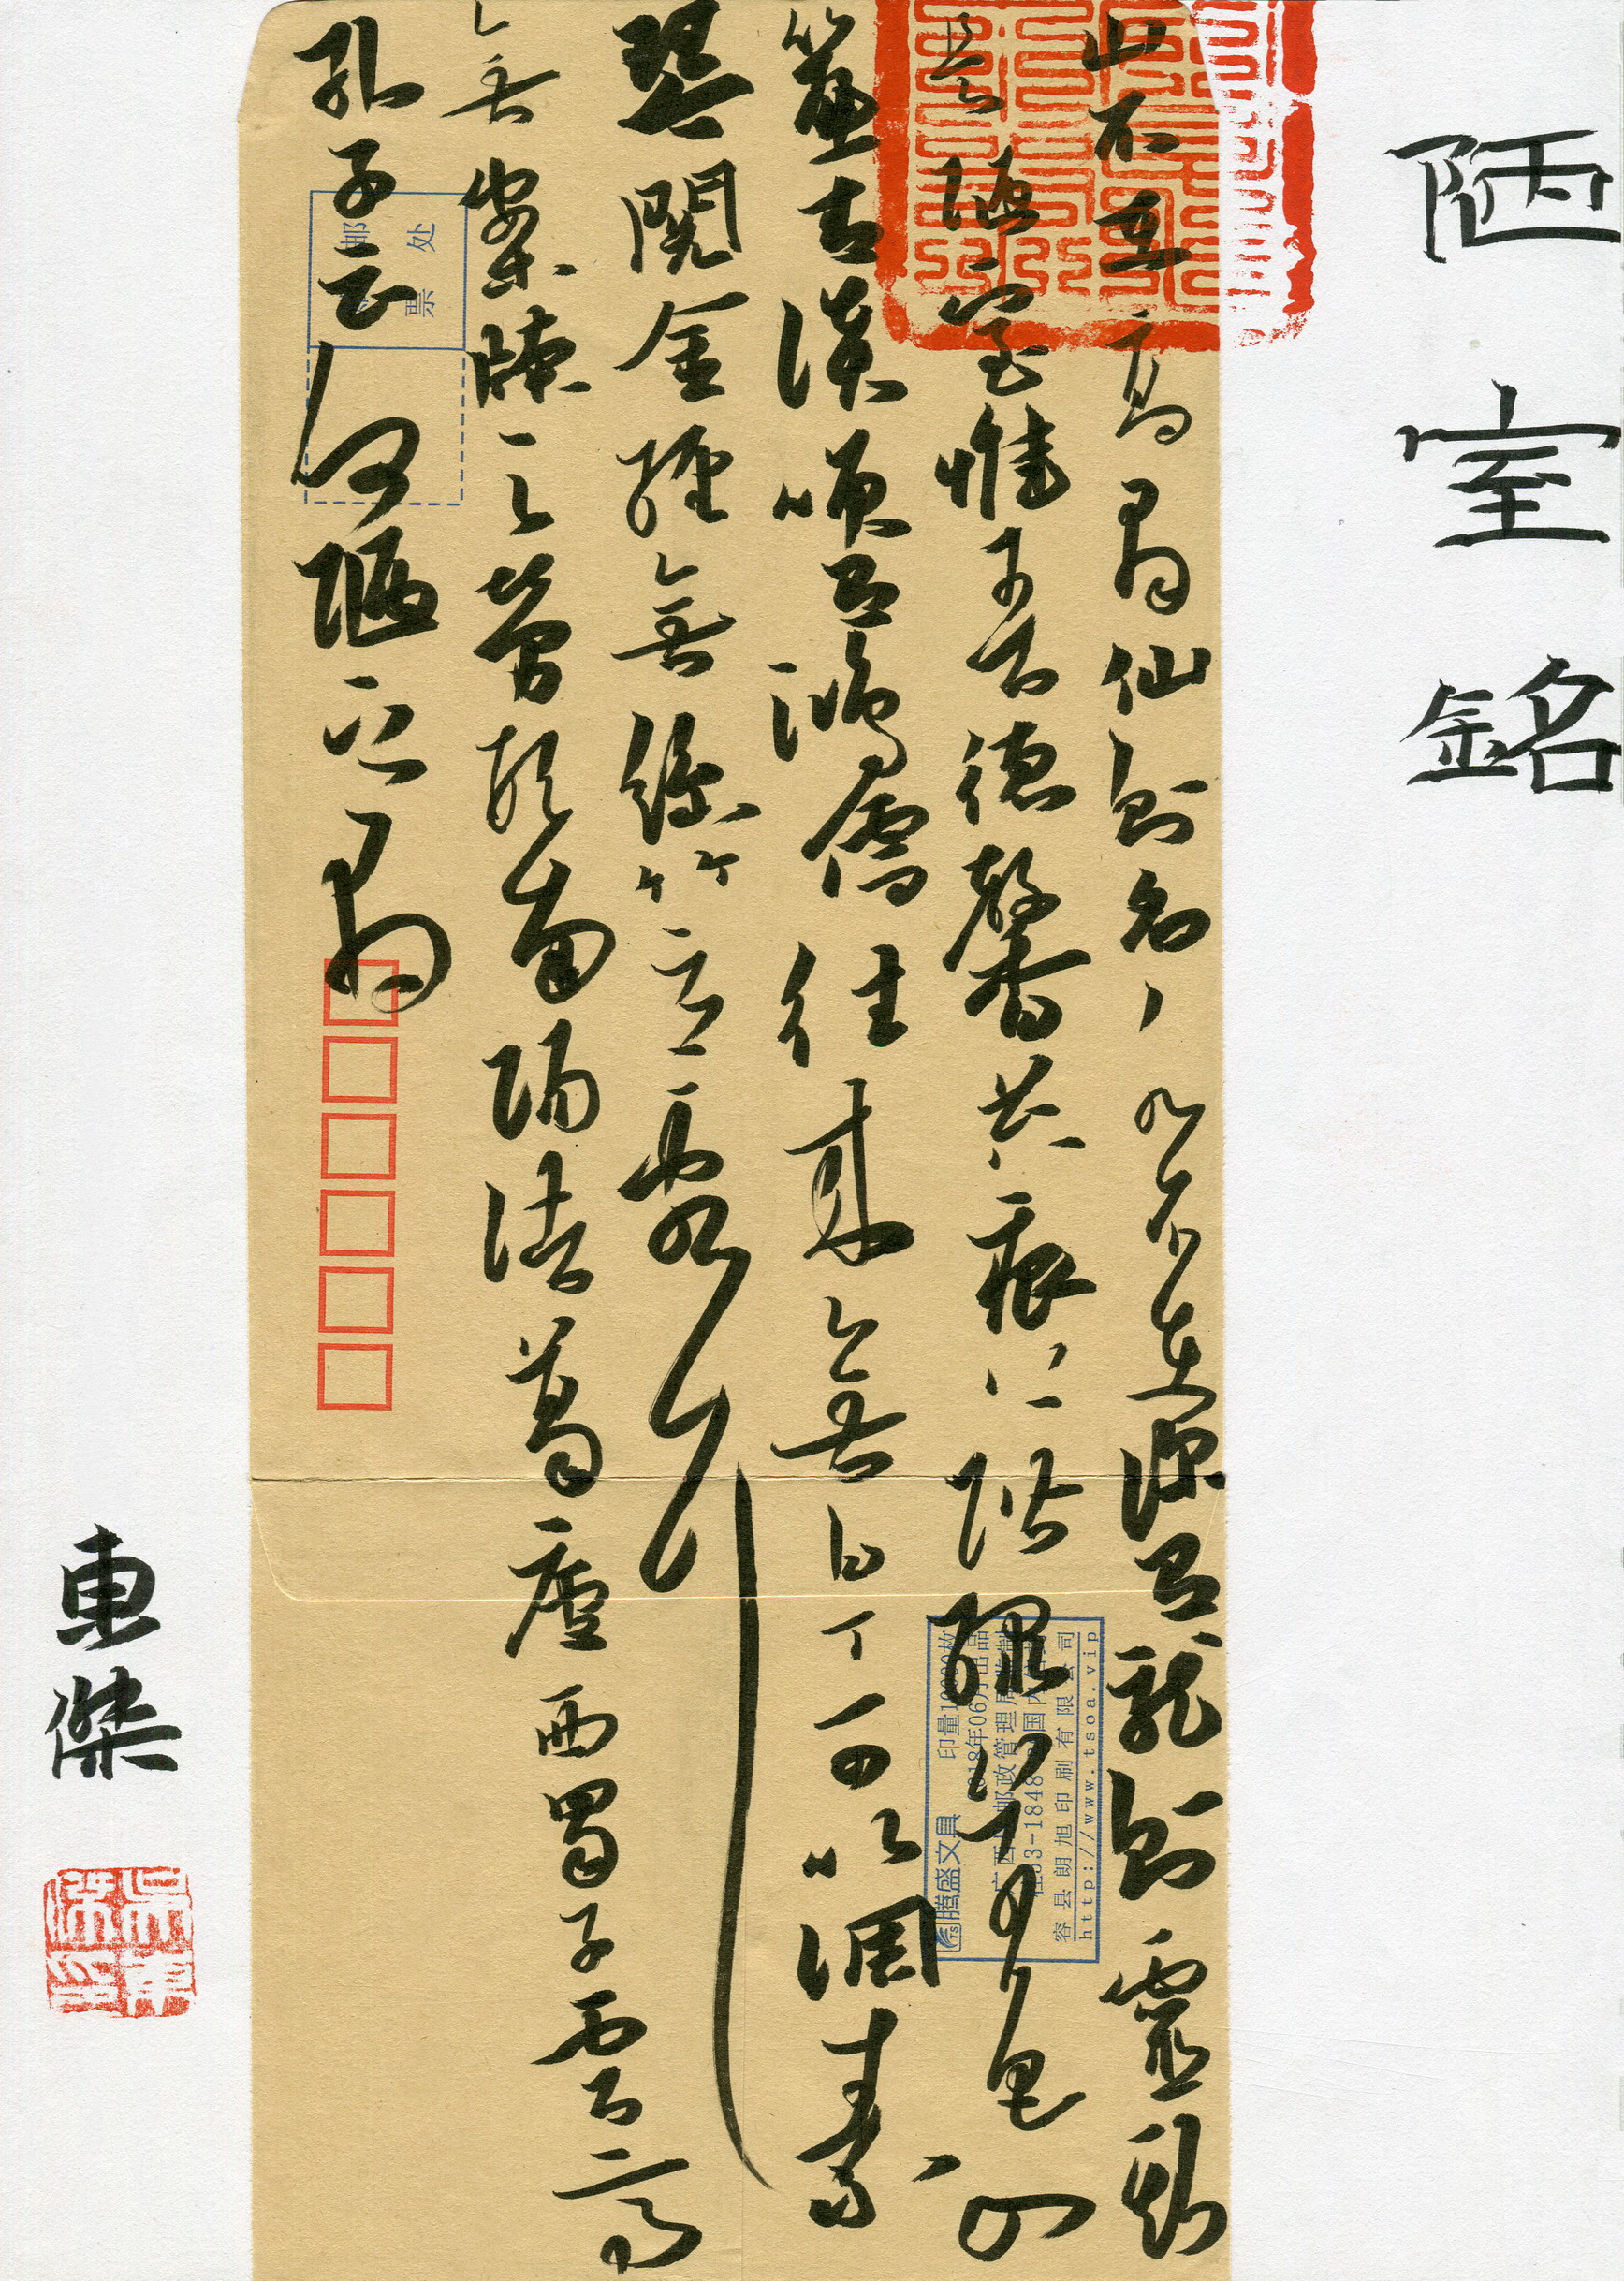 陋室銘
山不在高有仙則名水不在深有龍則靈斯
是陋室惟吾德馨苔痕上階綠草色入
簾青談笑有鴻儒往來無白丁可以調素
琴閱金經無絲竹之亂耳
無案牘之勞形南陽諸葛廬西蜀子雲亭
孔子云何陋之有
東傑
邮票处
腾盛文具 印量
年06月出品
邮政管理局
-1848 国内
容县朗旭印刷有限公司
http://www.tsoa.vip